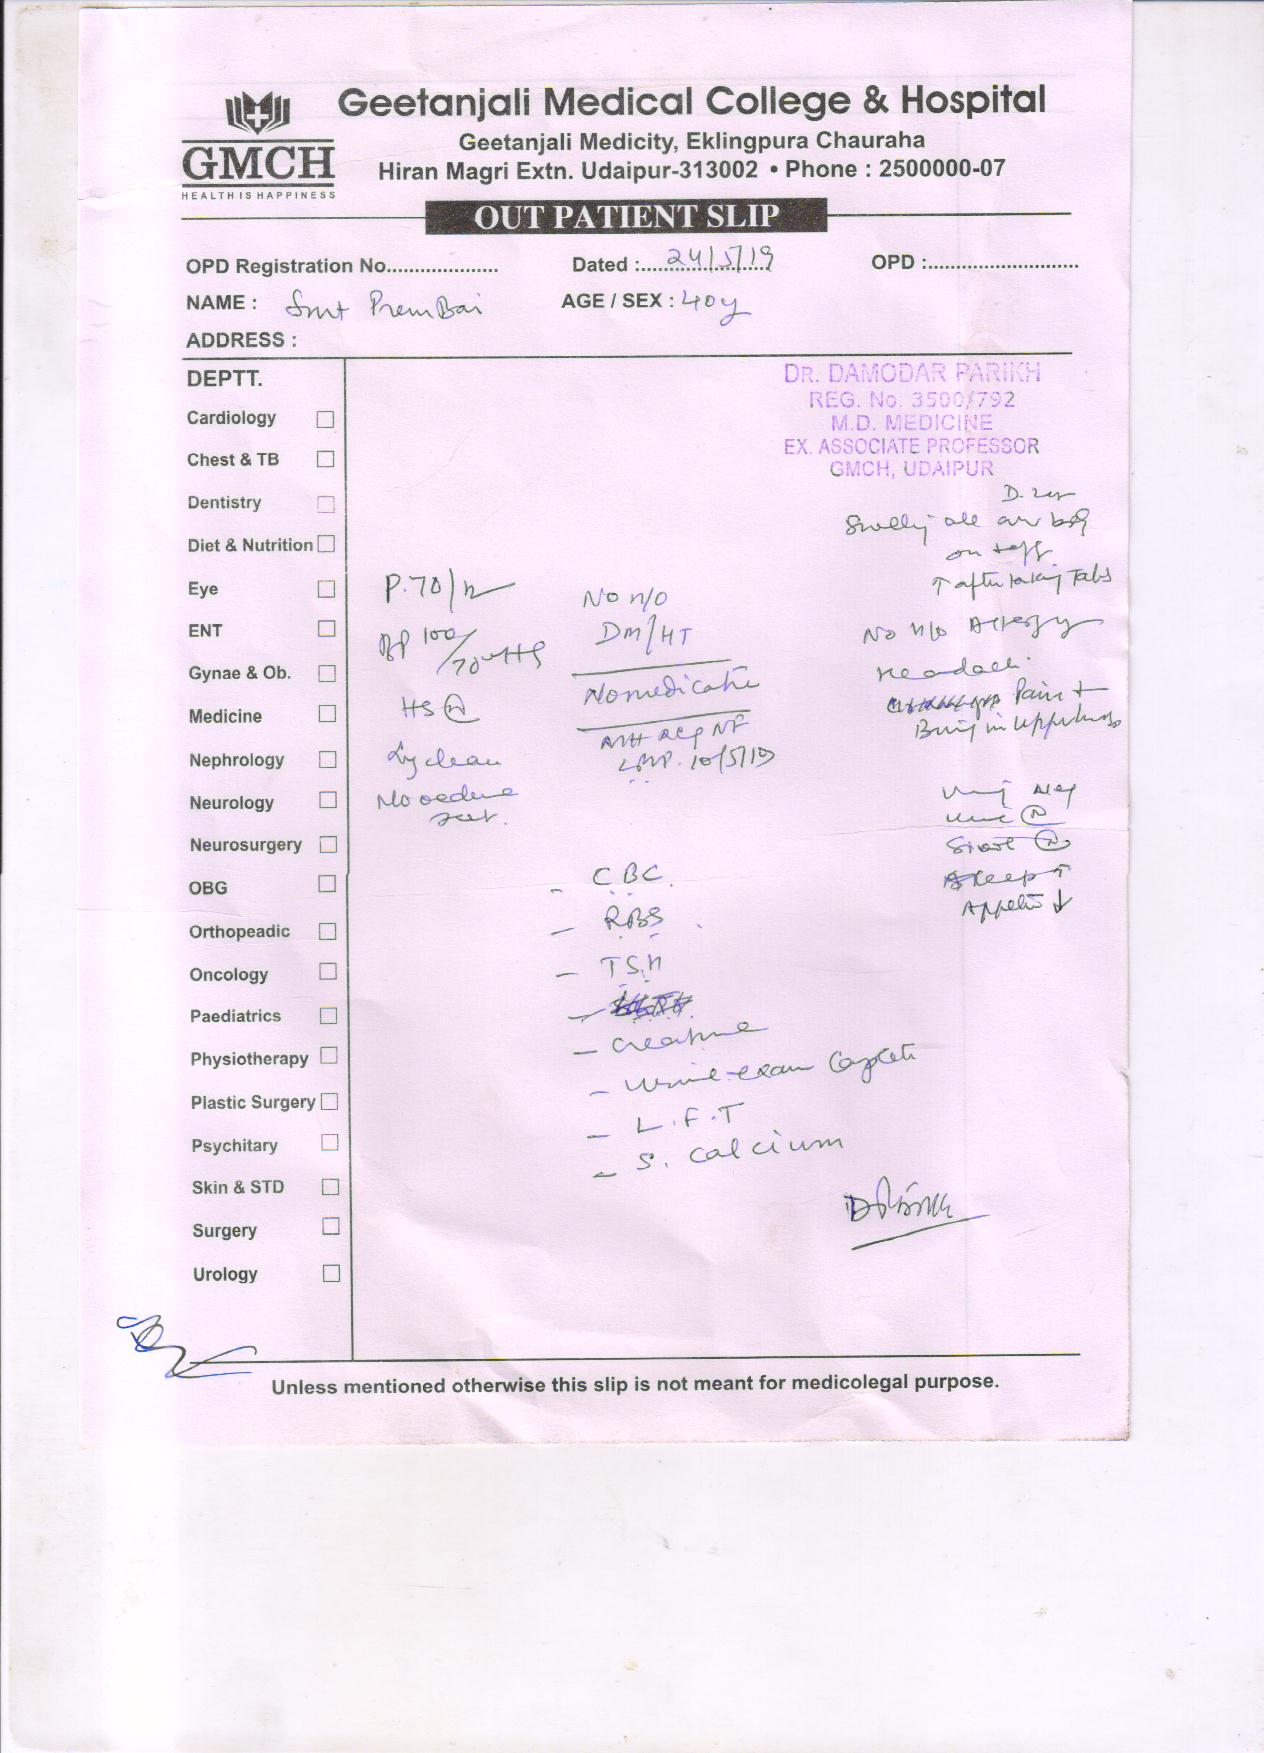 GMCH
HEALTH IS HAPPINESS
Geetanjali Medical College & Hospital
Geetanjali Medicity, Eklingpura Chauraha
Hiran Magri Extn. Udaipur-313002 • Phone : 2500000-07
OUT PATIENT SLIP
OPD Registration No.................... Dated :....24/5/19 OPD :............................
NAME : Smt Prem Bai AGE / SEX : 40y
ADDRESS :
DEPTT.
Cardiology
Chest & TB
Dentistry
Diet & Nutrition
Eye
ENT
Gynae & Ob.
Medicine
Nephrology
Neurology
Neurosurgery
OBG
Orthopeadic
Oncology
Paediatrics
Physiotherapy
Plastic Surgery
Psychitary
Skin & STD
Surgery
Urology
DR. DAMODAR PARIKH
REG. No. 3500/792
M.D. MEDICINE
EX. ASSOCIATE PROFESSOR
GMCH, UDAIPUR
Swelling all over body
on & off
↑ after taking Tabs
No H/O Allergy
Headache
Pain +
Urine (N)
Stool (N)
Sleep ↑
Appetite ↓
P. 70/
BP 100/70
HS (N)
clear
No oedema
feet.
No H/O
DM/HT
No medication
LMP. 10/5/19
- CBC
- RBS
- TSH
- Creatinine
- Urine exam Complete
- L.F.T
- S. Calcium
Unless mentioned otherwise this slip is not meant for medicolegal purpose.